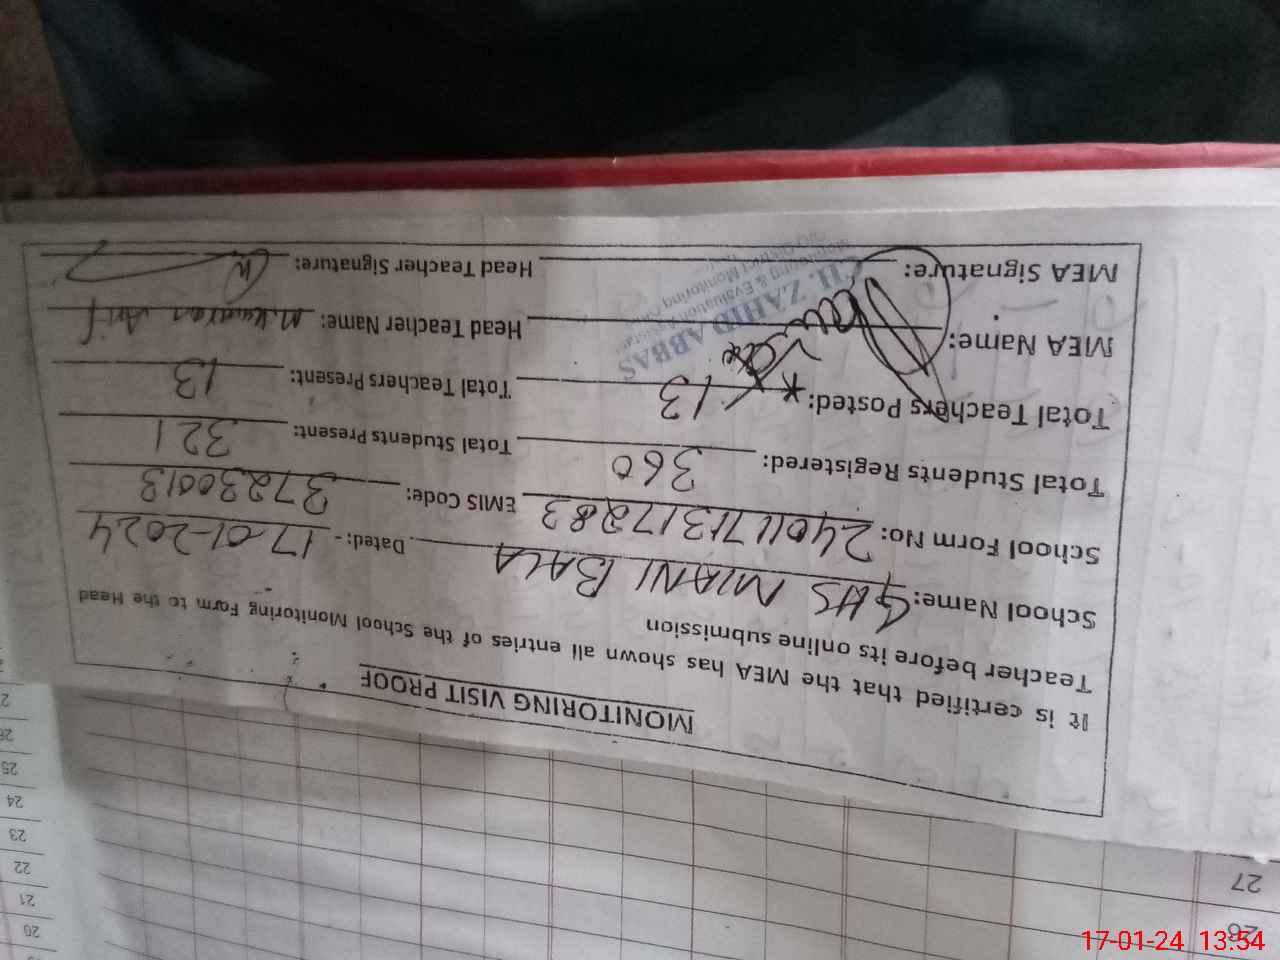 MONITORING VISIT PROOF
It is certified that the MEA has shown all entries of the School Monitoring Form to the Head
Teacher before its online submission
School Name: GHS MIANI BALA Dated:- 17-01-2024
School Form No: 2401171317283 EMIS Code: 37230013
Total Students Registered: 360 Total Students Present: 321
Total Teachers Posted: 13 Total Teachers Present: 13
MEA Name: Head Teacher Name: M. Kamran Arif
MEA Signature: Head Teacher Signature:
CH. ZAHID ABBAS
Monitoring & Evaluation Assistant
District Monitoring
20
21
22
23
24
25
26
27
26
27
17-01-24 13:54